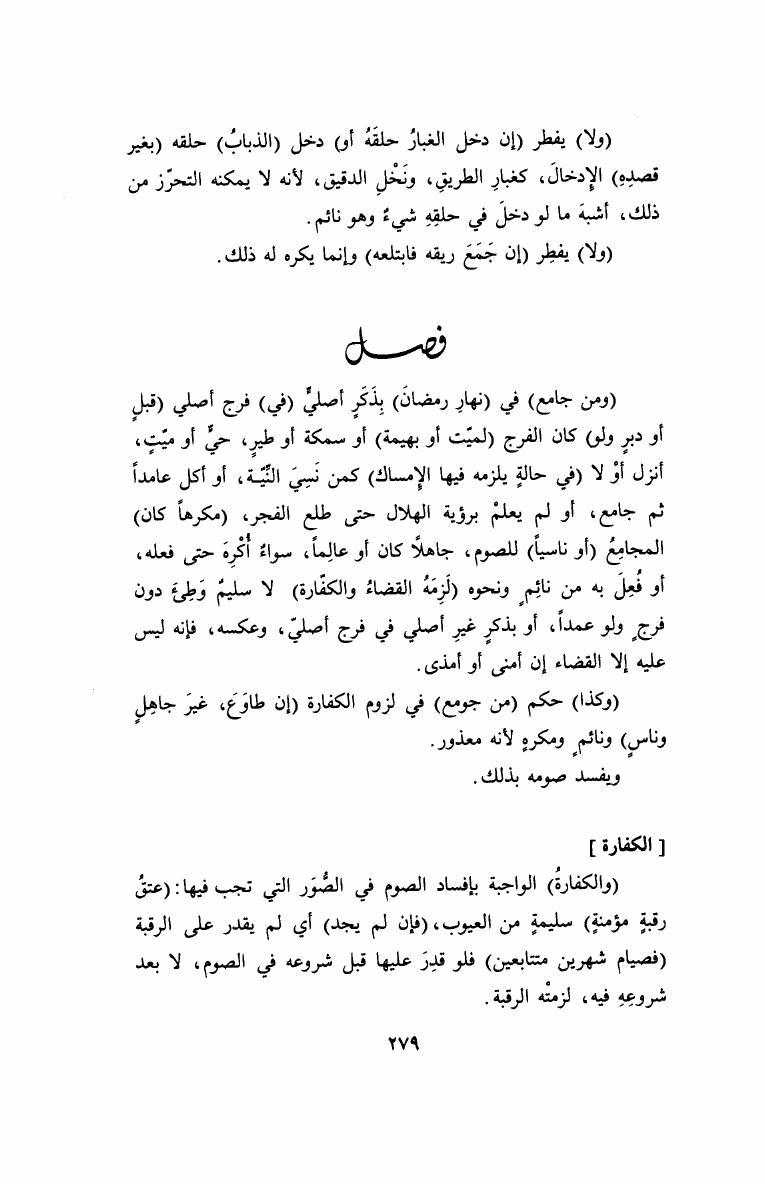 (ولا) يفطر (إن دخل الغبارُ حلقَهُ أو) دخل (الذبابُ) حلقه (بغير
قصدِهِ) الإدخالَ، كغبارِ الطريقِ، ونَخْلِ الدقيق، لأنه لا يمكنه التحرّز من
ذلك، أشبهَ ما لو دخلَ في حلقِهِ شيءٌ وهو نائم.
(ولا) يفطِر (إن جَمَعَ ريقه فابتلعه) وإنما يكره له ذلك.
فصل
(ومن جامع) في (نهارِ رمضانَ) بِذَكَرٍ أصليٍّ (في) فرج أصلي (قبلٍ
أو دبرٍ ولو) كان الفرج (لميّت أو بهيمة) أو سمكة أو طيرٍ، حيٍّ أو ميّتٍ،
أنزل أوْ لا (في حالةٍ يلزمه فيها الإمساك) كمن نَسِيَ النِّيَّة، أو أكل عامداً
ثم جامع، أو لم يعلمْ برؤية الهلال حتى طلع الفجر، (مكرهاً كان)
المجامِعُ (أو ناسياً) للصوم، جاهلًا كان أو عالِماً، سواءٌ أُكْرِهَ حتى فعله،
أو فُعِلَ به من نائِمٍ ونحوه (لَزِمَهُ القضاءُ والكفّارة) لا سليمٌ وَطِئَ دون
فرجٍ ولو عمداً، أو بذكرٍ غيرِ أصلي في فرج أصليّ، وعكسه، فإنه ليس
عليه إلا القضاء إن أمنى أو أمذى.
(وكذا) حكم (من جومع) في لزوم الكفارة (إن طاوَعَ، غيرَ جاهِلٍ
وناسٍ) ونائمٍ ومكرهٍ لأنه معذور.
ويفسد صومه بذلك.
[ الكفارة ]
(والكفارةُ) الواجبة بإفساد الصوم في الصُّوَر التي تجب فيها: (عتقُ
رقبةٍ مؤمنةٍ) سليمةٍ من العيوب، (فإن لم يجد) أي لم يقدر على الرقبة
(فصيام شهرين متتابعين) فلو قدِرَ عليها قبل شروعه في الصوم، لا بعد
شروعِهِ فيه، لزمتْه الرقبة.
٢٧٩